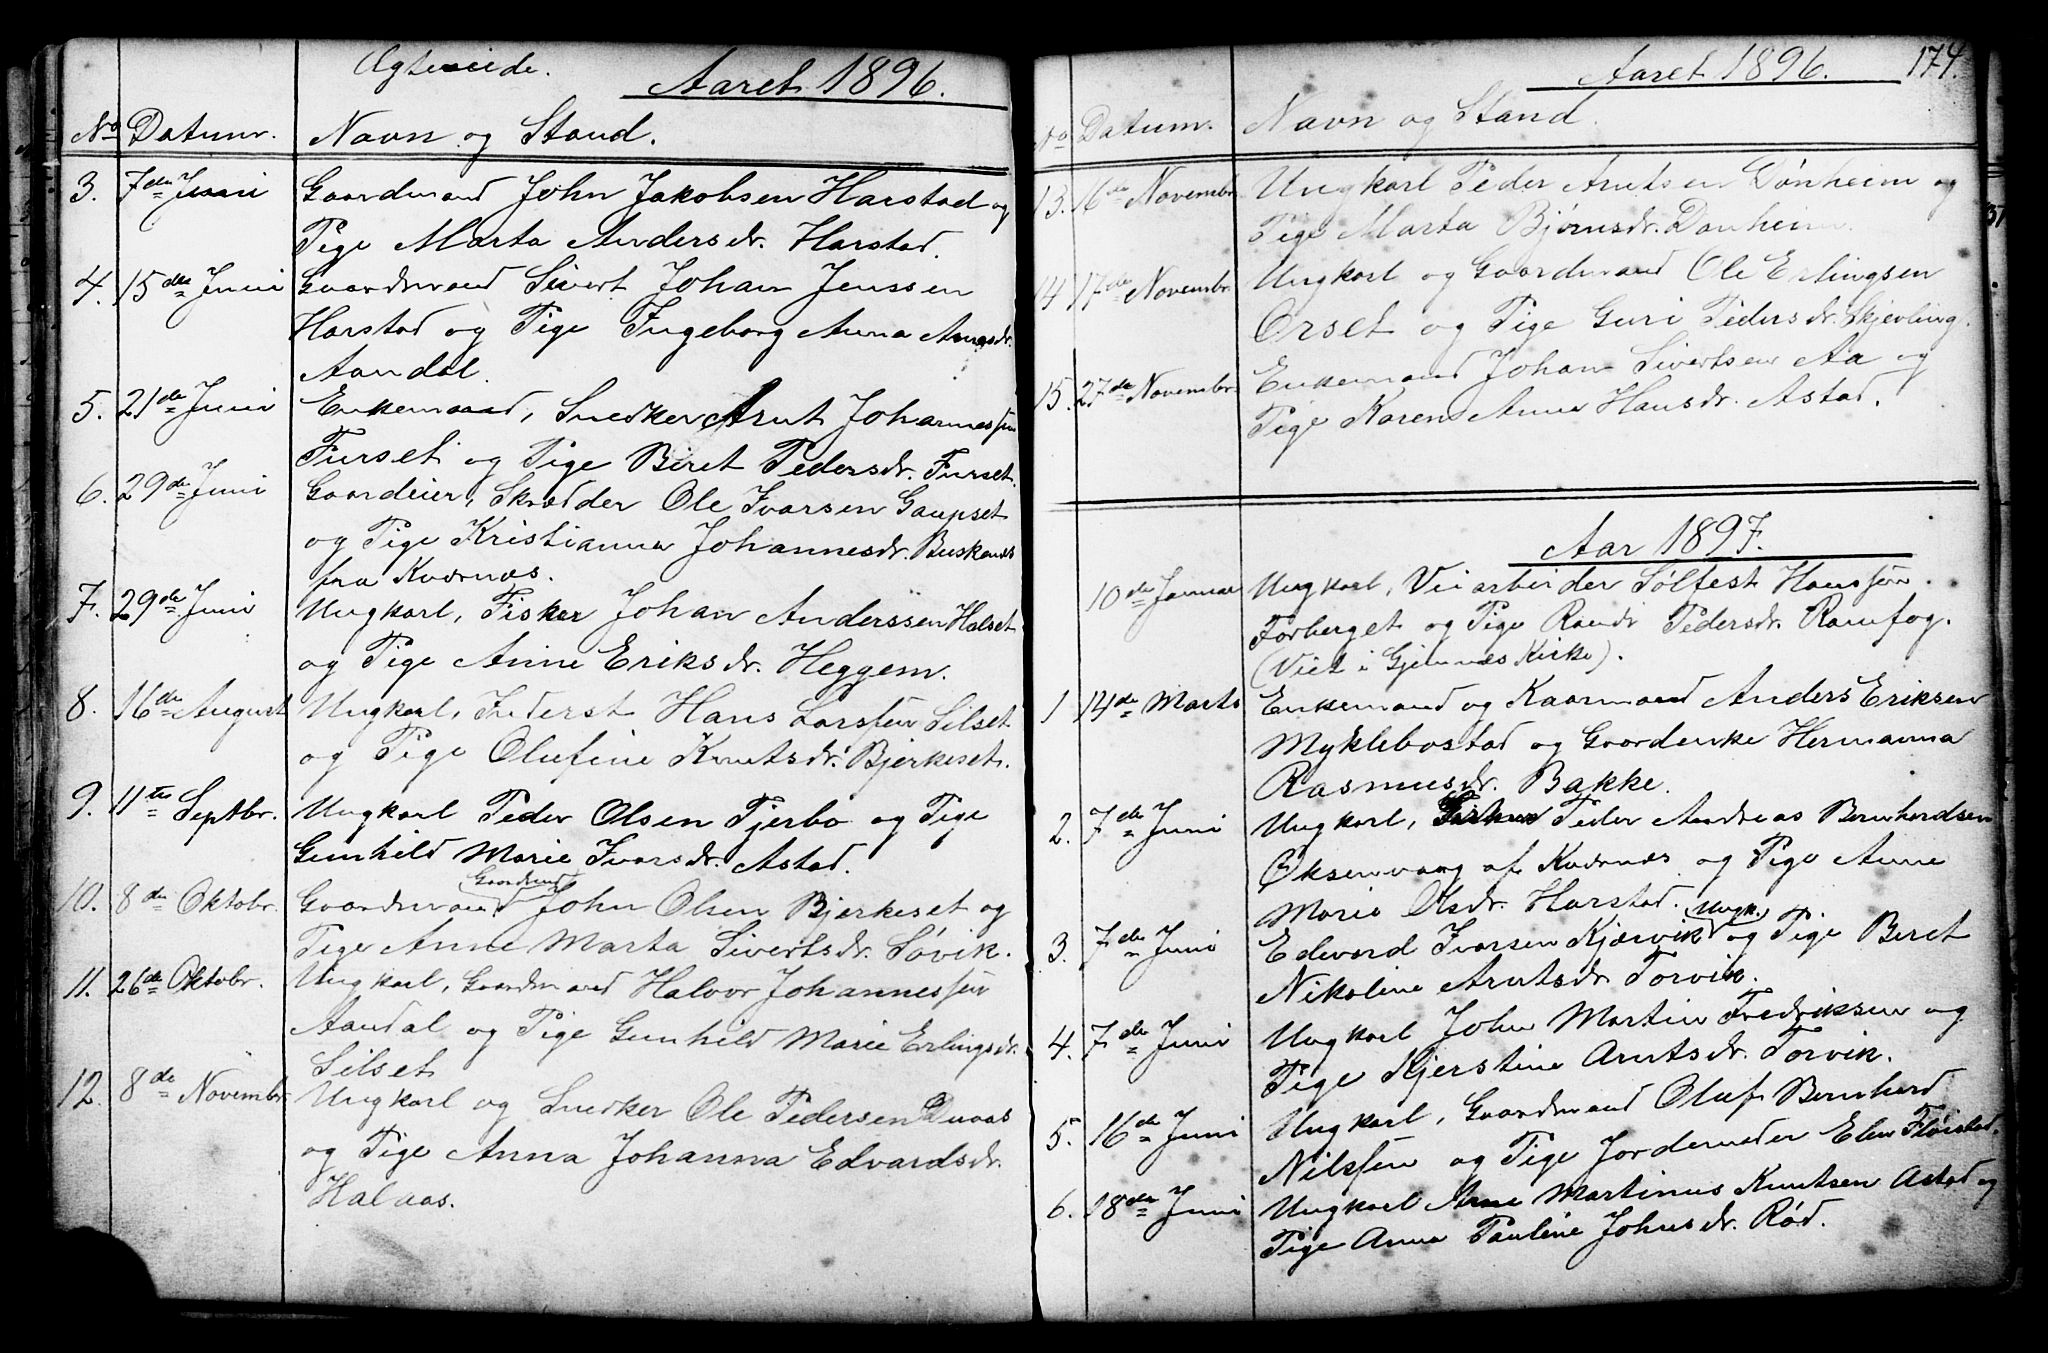 Ægteviede.
Aaret 1896.
No Datum. Navn og Stand.
3. 7de Juni Gaardmand John Jakobsen Harstad og
Pige Marta Andersdr. Harstad.
4. 15de Juni Gaardmand Sivert Johan Jenssen
Harstad og Pige Ingeborg Anna
Aandal.
5. 21de Juni Enkemand, Snedker Arnt Johannessen
Furset og Pige Beret Pedersdr. Furset.
6. 29de Juni Gaardeier, Skrædder Ole Ivarsen Gaupset
og Pige Kristianna Johannesdr. Buskenes
fra Kvernæs.
7. 29de Juni Ungkarl, Fisker Johan Anderssen Halset
og Pige Anne Eriksdr. Heggem.
8. 16de August Ungkarl, Inderst Hans Larssen Silset
og Pige Olufine Knutsdr. Bjerkeset.
9. 11te Septbr. Ungkarl Peder Olsen Tjerbo og Pige
Gunhild Marie Ivarsdr. Astad.
10. 8de Oktobr. Gaardmand Gaardmand John Olsen Bjerkeset og
Pige Anne Marta Sivertsdr. Søvik.
11. 26de Oktobr. Ungkarl, Gaardmand Halvor Johannessen
Aandal og Pige Gunhild Marie Erlingsdr.
Silset
12. 8de Novembr. Ungkarl og Snedker Ole Pedersen Duaas
og Pige Anna Johanna Edvardsdr.
Halaas.
Aaret 1896. 174.
No Datum. Navn og Stand.
13. 16de Novembr. Ungkarl Peder Arntsen Dønheim og
Pige Marta Bjørnsdr. Dønheim.
14 17de Novembr. Ungkarl og Gaardmand Ole Erlingsen
Orset og Pige Guri Pedersdr. Skjevling.
15. 27de Novembr. Enkemand Johan Sivertsen Aa og
Pige Karen Anne Hansdr. Astad.
Aar 1897.
10de Januar Ungkarl, Veiarbeider Sølfest Hanssen
Forberget og Pige Randi Pedersdr. Ramfog.
(Viet i Gjemnæs Kirke).
1 14de Marts Enkemand og Kaarmand Anders Eriksen
Myklebostad og Gaardenke Hermanna
Rasmusdr. Bakke.
2. 7de Juni Ungkarl, Peder Andreas Bernhardsen
Øksenvaag af Kvernæs og Pige Anne
Marie Olsdr. Harstad.
3. 7de Juni Edvard Ivarsen Kjærvik Ungk. og Pige Beret
Nikoline Arntsdr. Torvik.
4. 7de Juni Ungkarl John Martin Fredriksen og
Pige Kjerstine Arntsdr. Torvik.
5. 16de Juni Ungkarl, Gaardmand Oluf Bernhard
Nilssen og Pige Jordemoder Elen Fløistad.
6. 18de Juni Ungkarl Arne Martinus Knutsen Astad og
Pige Anna Pauline Johnsdr. Rød.